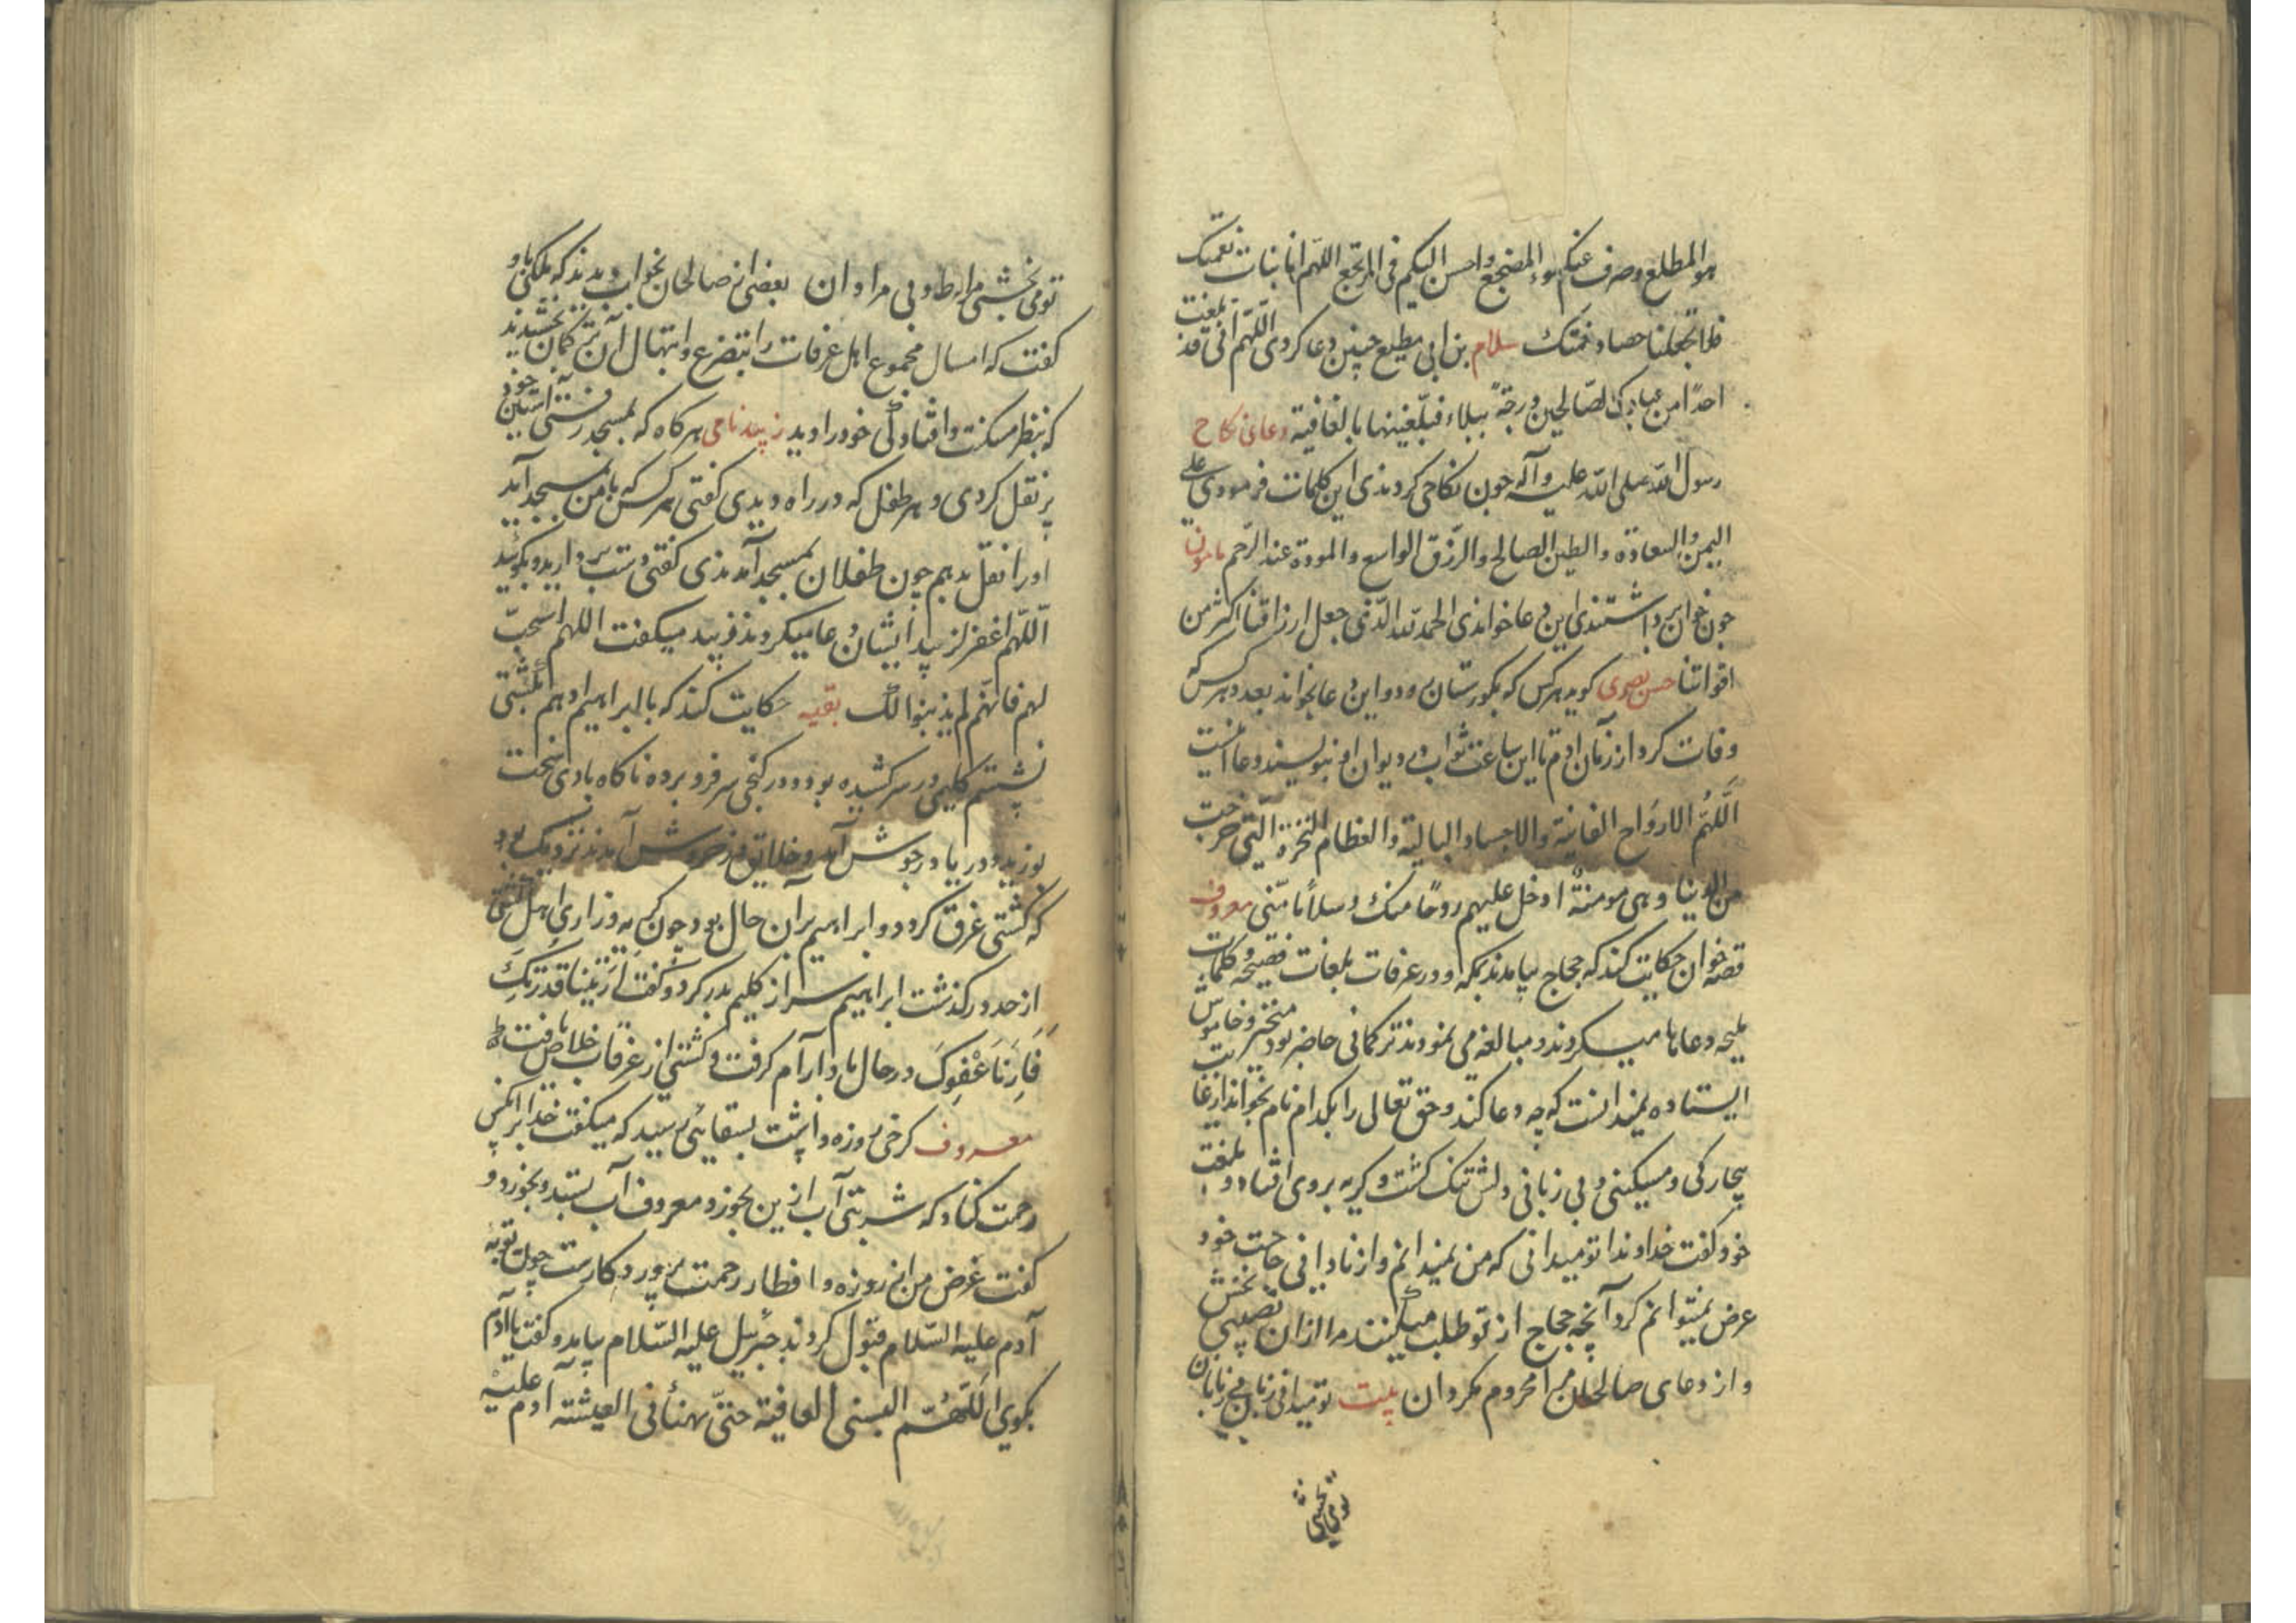 هو المطلع وصرف عنکم سوء المضجع واحسن الیکم فی المرجع اللهم انا نبات نعمتک
فلا تجعلنا حصاد نقمتک سلام بن ابی مطیع چنین دعا کردی اللهم انی قد بلغت
احدًا من عبادک الصالحین درجة ببلاء فبلّغینها بالعافیة دعای نکاح
رسول الله صلی الله علیه وآله چون نکاحی کردندی این کلمات فرمودی علی
الیمن والسعادة والطین الصالح والرزق الواسع والمودة عند الرحم مامون
چون خوان برداشتندی این دعا خواندی الحمد لله الذی جعل ارزاقنا اکثر من
اقواتنا حسن بصری گوید هر کس که بگورستان رود و این دعا بخواند بعدد هر کس که
وفات کرد از زمان آدم تا این ساعت ثواب در دیوان او بنویسند دعا اینست
اَللّٰهُمَّ الارواح الفانیة والاجساد البالیة والعظام النخرة التی خرجت
من الدنیا وهی مومنةٌ ادخل علیهم روحًا منک وسلامًا منّی معروف
قصه خوان حکایت کند که حجاج بیامدند بمکه و در عرفات بلغات فصیحه و کلمات
ملیحه دعاها میکردند و مبالغه می نمودند ترکمانی حاضر بود متحیر و خاموش
ایستاده نمیدانست که چه دعا کند و حق تعالی را بکدام نام بخواند از غایت
بیچارگی و مسکینی و بی زبانی دلش تنک گشت و گریه بروی افتاد و بلغت
خود گفت خداوندا تو میدانی که من نمیدانم و از نادانی حاجت خود
عرض نمیتوانم کرد آنچه حجاج از تو طلب میکنند مرا ازان نصیبی بخش
و از دعای صالحان مرا محروم مکردان بیت تو میدانی زبان بی زبانان
تو می بخشی
تو می بخشی مراد نامرادان بعضی از صالحان بخواب دیدند که ملکی باو
گفت که امسال مجموع اهل عرفات را بتضرع و ابتهال آن ترکمان بخشیدند
که بنظر مسکنت و افتادگی خود را دید زبید نامی هر گاه که بمسجد رفتی آستین خود
پر نقل کردی و هر طفل که در راه دیدی گفتی هر کس که با من بمسجد آید
او را نقل بدهم چون طفلان بمسجد آمدندی گفتی دست بردارید و بگوئید
اللّهم اغفر لزبید ایشان دعا میکردند و زبید میگفت اللهم استجب
لهم فانهم لم یذنبوا لک بقیه حکایت کند که با ابراهیم ادهم بکشتی
نشستم گلیمی در سر کشیده بود و در کنجی سر فرو برده ناگاه بادی سخت
بوزید و دریا در جوش آمد و خلایق در خروش آمدند نزدیک بود
که کشتی غرق گردد و ابراهیم بر آن حال بود چون گریه و زاری اهل کشتی
از حد در گذشت ابراهیم سر از گلیم بدر کرد و گفت اَرَیتنا قدرتکَ
فَاَرِنَا عَفْوکَ در حال باد آرام گرفت و کشتی از غرقاب خلاص یافت
معروف کرخی روزه داشت بسقائی رسید که میگفت خدا بر آنکس
رحمت کناد که شربتی آب ازین بخورد معروف آب بستد و بخورد و
گفت غرض من از روزه و افطار رحمت پروردگارست چون توبه
آدم علیه السّلام قبول کردند جبرئیل علیه السّلام بیامد و گفت یا آدم
بگوی اَللّٰهُمّ البسنی العافیة حتی تهنأنی العیشة آدم علیه